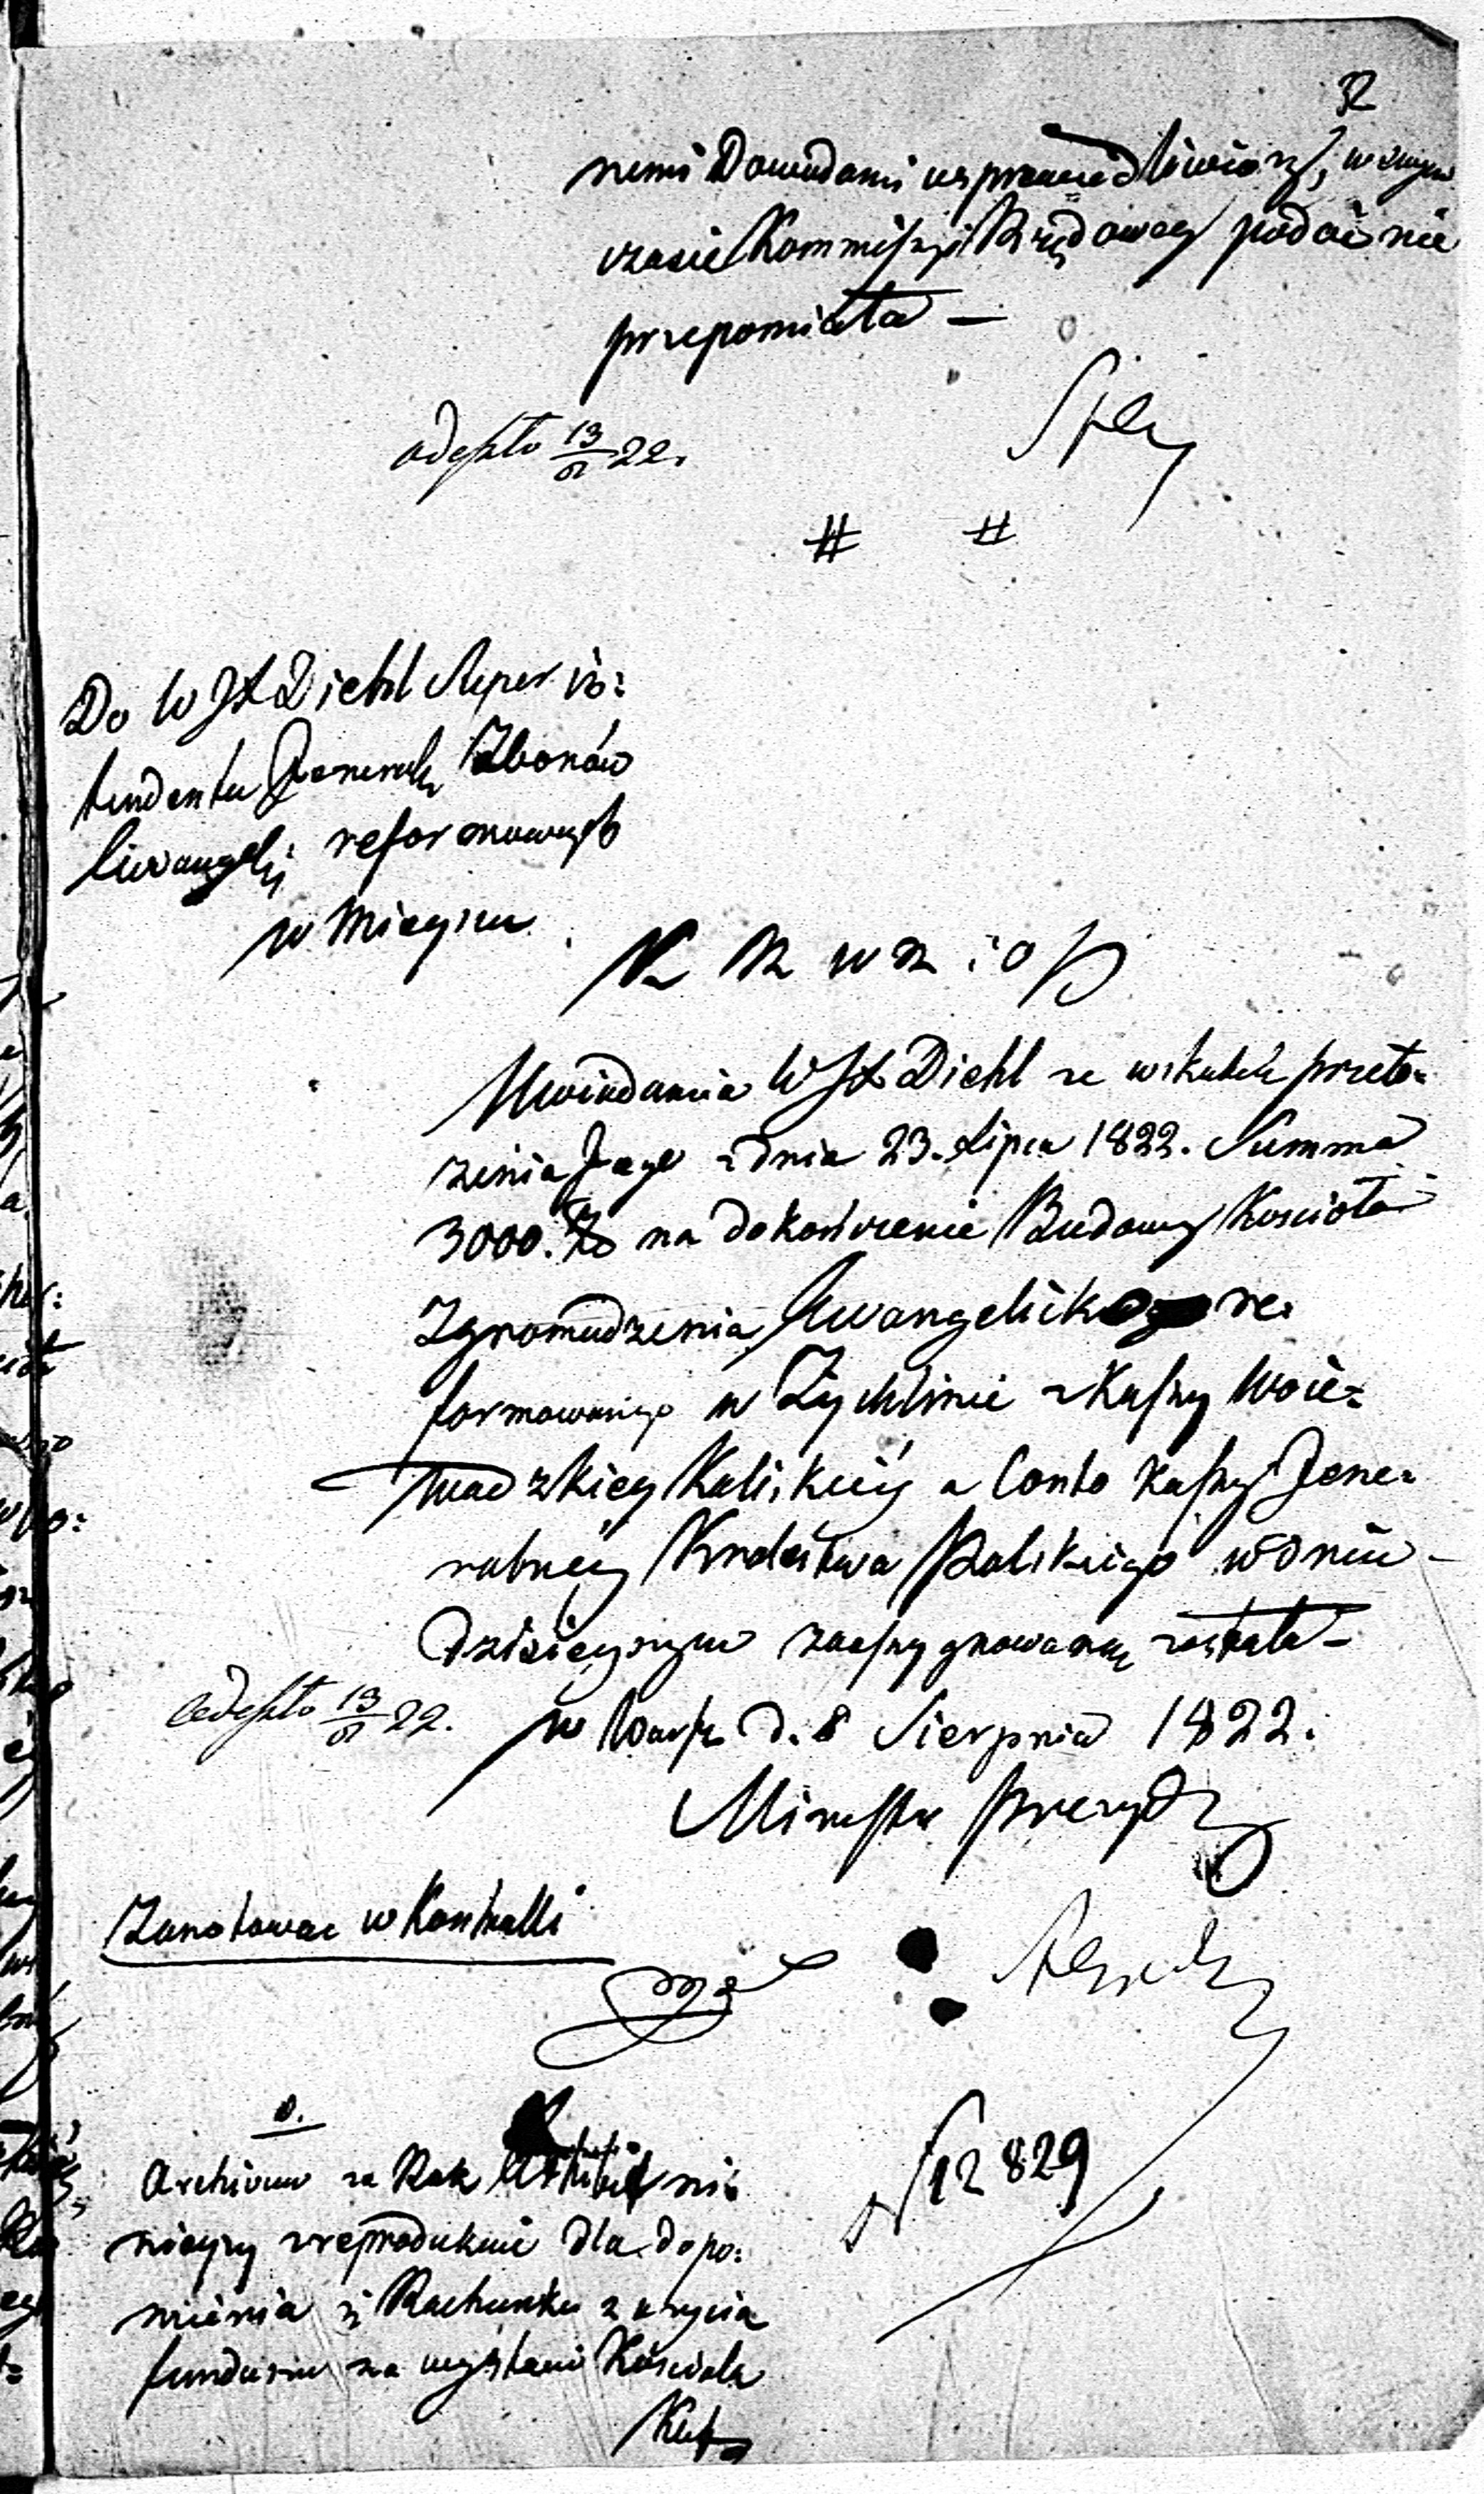 32
nemi Dowodami usprawiedliwiony, w swym
czasie Kommissyi Rządowey podać nie
przepomniała —
adespto 13/8 22.
# #
Do W JX Diehl Super in:
tendenta Jeneral. Zborów
Ewangelij reformowanych
w Mieyscu
K R W R i O P
Uwiadamia WJX Diehl ze w skutek przeło-
żenia Jego z dnia 23. Lipca 1822. Summa
3000. Zł na dokończenie Budowy Kościoła
Zgromadzenia Ewangelickogo re-
formowanego w Żychlinie z Kassy Woie-
wudzkiey Kaliskiéy a Conto Kassy Jene-
ralnéy Królestwa Polskiego w dniu
dzisieyszym zaassygnowaną została —
adespto 13/8 22.
w Warsz d. 8 Sierpnia 1822.
Minister Prezyd
Zanotowac w Kontrolli
N 12829
Archivum za Rok nie
nieyszy zreprodukuie dla dopo:
mnienia się Rachunku z użycia
funduszu na wystawie Kościoła